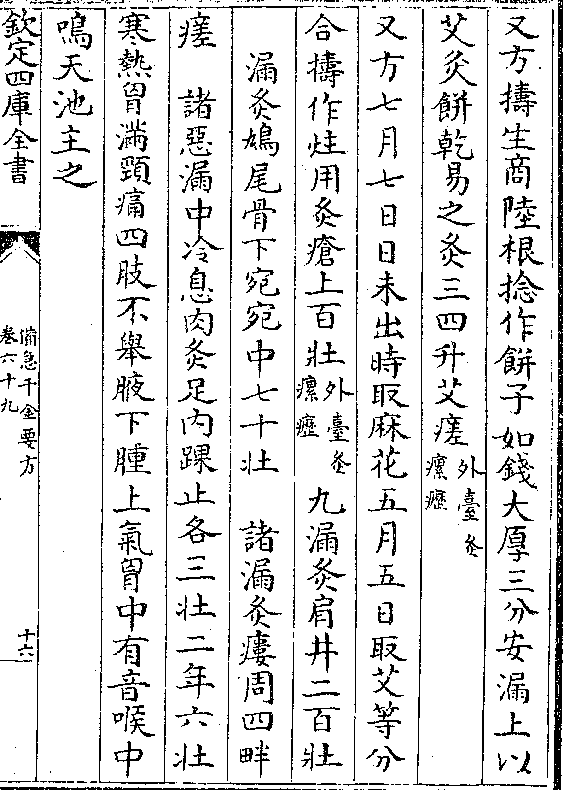 又方擣生商陸根捻作餅子如錢大厚三分安漏上以
艾灸餅乾易之灸三四升艾瘥外臺灸瘰癧
又方七月七日日未出時取麻花五月五日取艾等分
合擣作炷用灸瘡上百壯外臺灸瘰癧　九漏灸肩井二百壯
漏灸鳩尾骨下宛宛中七十壯　諸漏灸瘻周四畔
瘥　諸惡漏中冷息肉灸足内踝止各三壯二年六壯
寒熱胷滿頸痛四肢不舉腋下腫上氣胷中有音喉中
鳴天池主之
欽定四庫全書
備急千金要方
卷六十九
十六